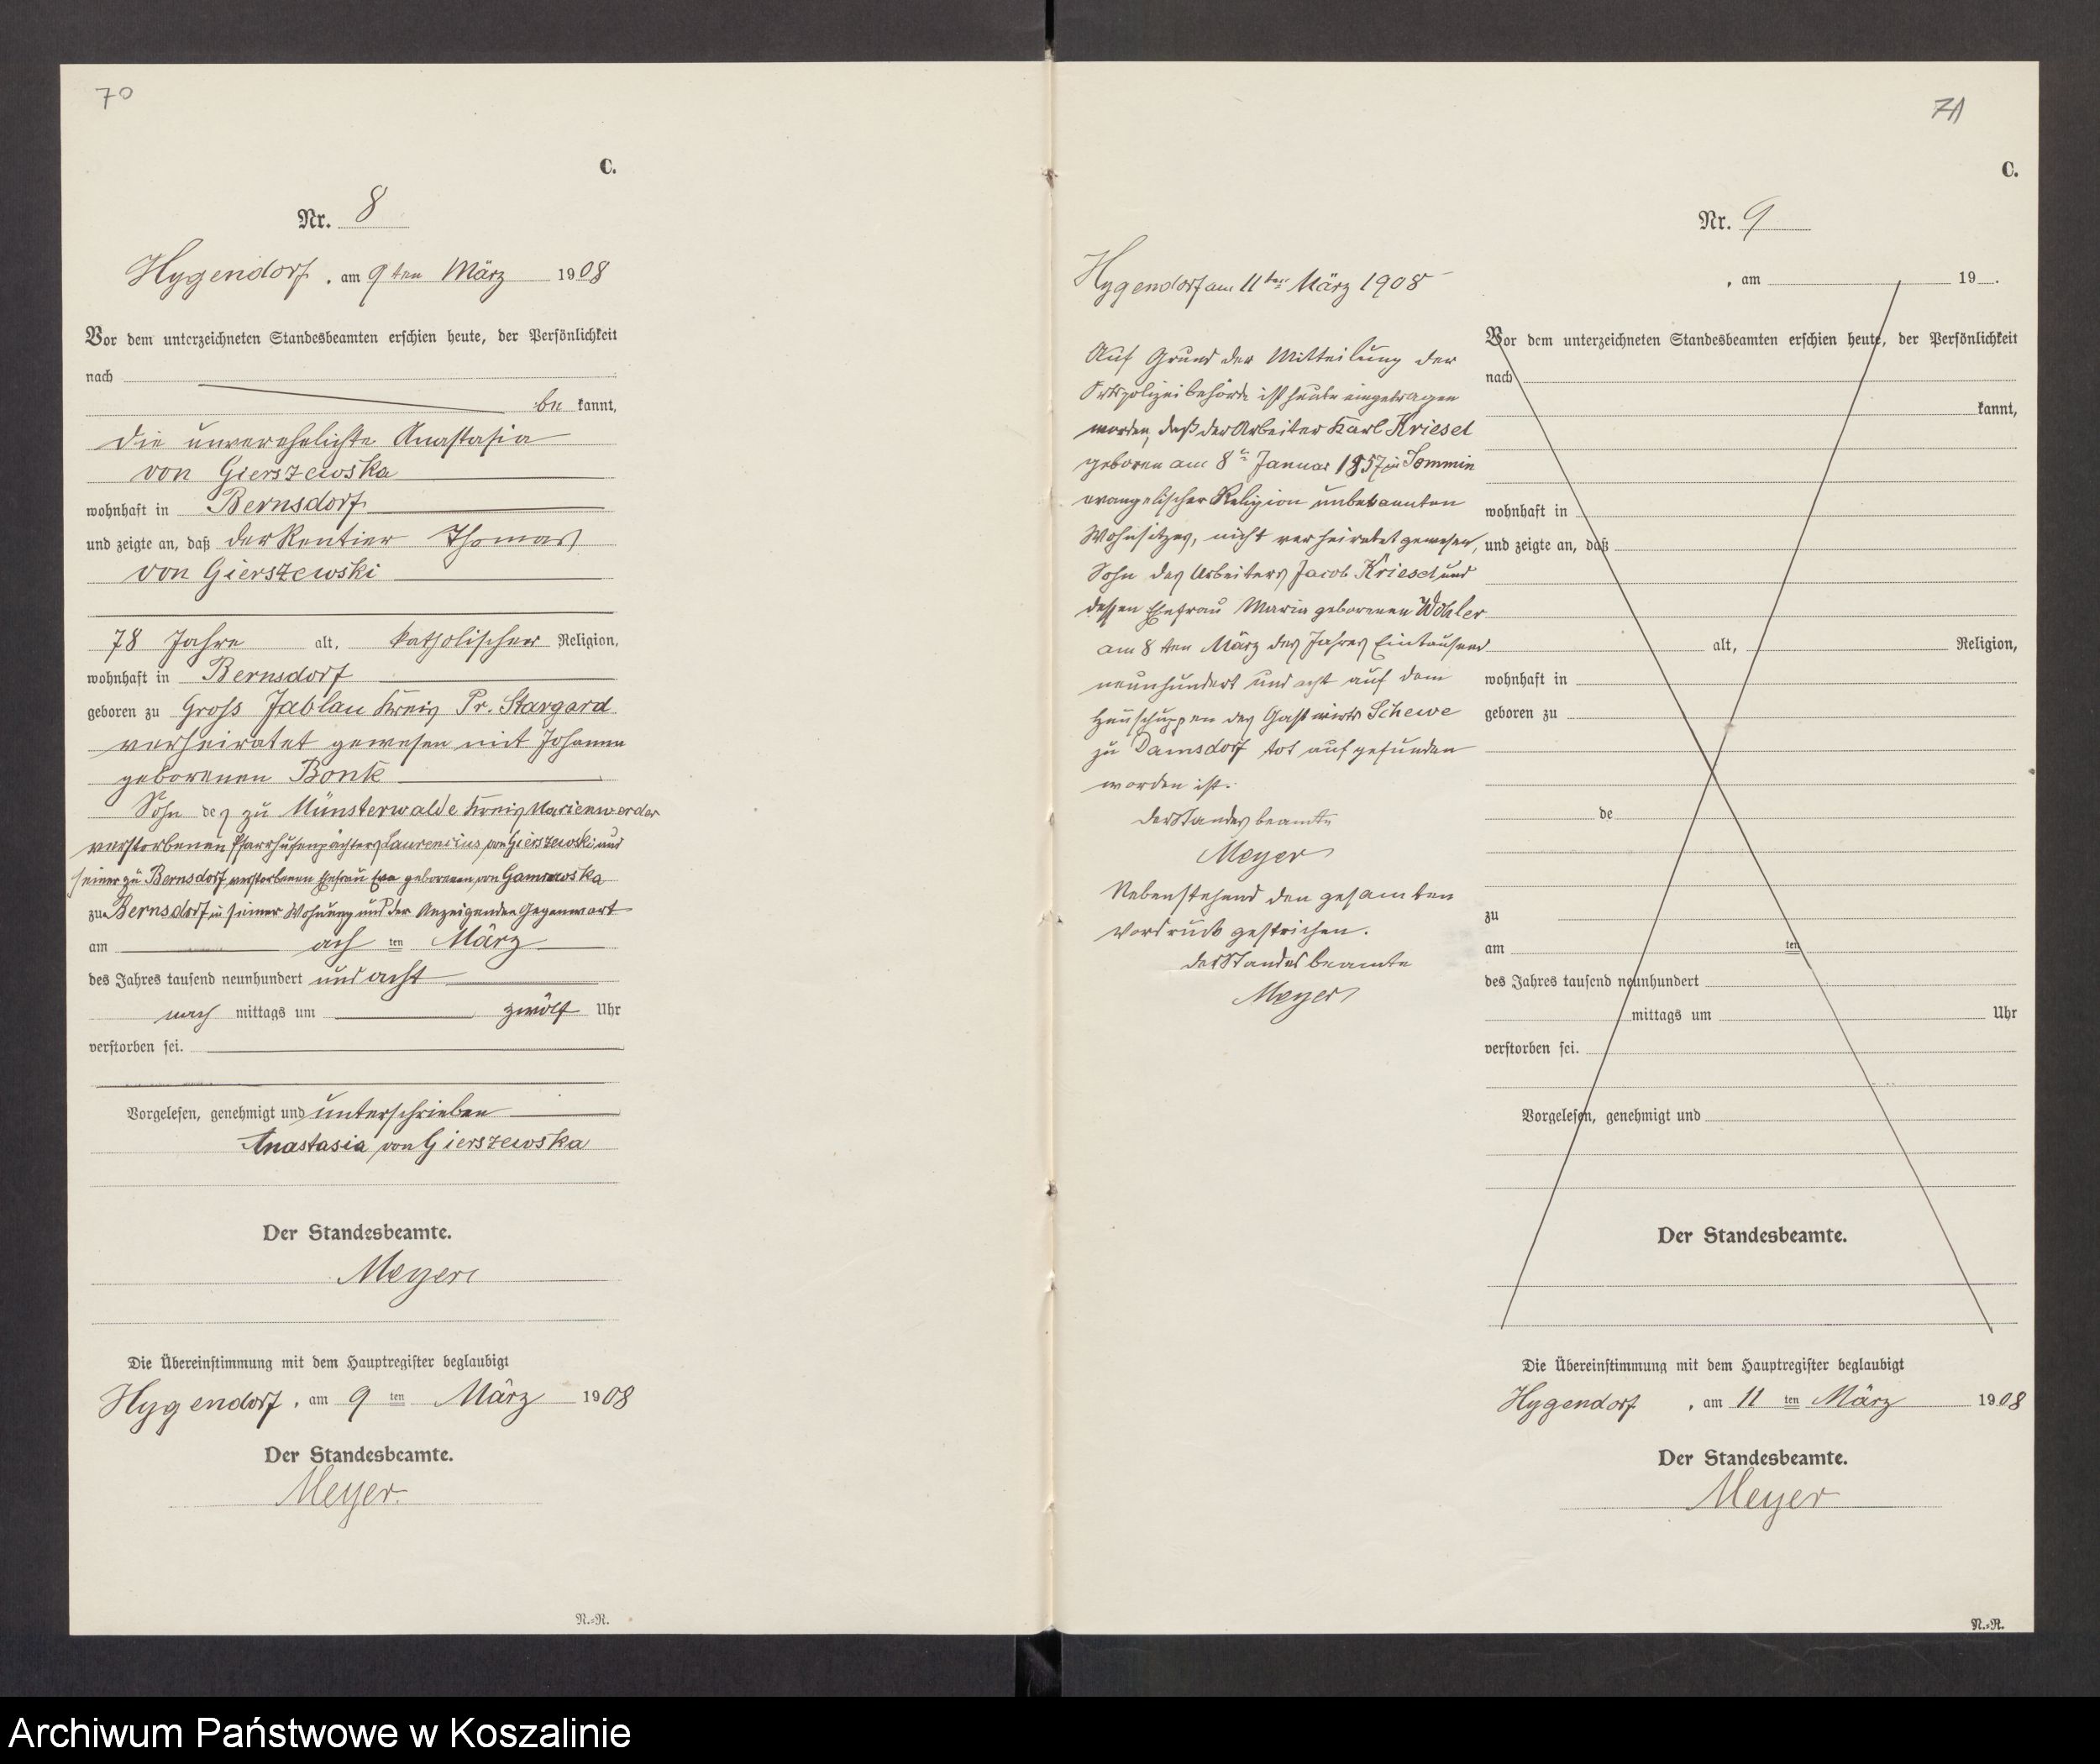 70
C.
Nr. 8
Hygendorf, am 9ten März 1908
Vor dem unterzeichneten Standesbeamten erschien heute, der Persönlichkeit
nach
be kannt,
die unverehelichte Anastasia
von Gierszewska
wohnhaft in Bernsdorf
und zeigte an, daß der Rentier Thomas
von Gierszewski
78 Jahre alt, katholischer Religion,
wohnhaft in Bernsdorf
geboren zu Gross Jablau Kreis Pr. Stargard
verheiratet gewesen mit Johanna
geborenen Bonk
Sohn des zu Münsterwalde Kreis Marienwerder
verstorbenen Pfarrhufenpächters Laurencius von Gierszewski und
seiner zu Bernsdorf verstorbenen Ehefrau Eva geborenen von
zu Bernsdorf in seiner Wohnung und der Anzeigenden Gegenwart
am ach ten März
des Jahres tausend neunhundert und acht
nach mittags um zwölf Uhr
verstorben sei.
Vorgelesen, genehmigt und unterschrieben
Anastasia von Gierszewska
Der Standesbeamte.
Meyer
Die Übereinstimmung mit dem Hauptregister beglaubigt
Hygendorf, am 9 ten März 1908
Der Standesbeamte.
Meyer.
N.-R.
71
C.
Nr. 9
Hygendorf am 11ten März 1908
Auf Grund der Mitteilung der
Ortspolizeibehörde ist heute eingetragen
worden, daß der Arbeiter Karl Kriesel
geboren am 8ten Januar 1857 in Sommin
evangelischer Religion unbekannten
Wohnsitzes, nicht verheiratet gewesen,
Sohn des Arbeiters Jacob Kriesel und
dessen Ehefrau Maria geborenen Wöhler
am 8 ten März des Jahres Eintausend
neunhundert und acht auf dem
Heuschuppen des Gastwirts Schewe
zu Damsdorf tot aufgefunden
worden ist.
der Standesbeamte
Meyer
Nebenstehend den gesamten
Vordruck gestrichen.
der Standesbeamte
Meyer
, am 19 .
Vor dem unterzeichneten Standesbeamten erschien heute, der Persönlichkeit
nach
kannt,
wohnhaft in
und zeigte an, daß
alt, Religion,
wohnhaft in
geboren zu
de
zu
am ten
des Jahres tausend neunhundert
mittags um Uhr
verstorben sei.
Vorgelesen, genehmigt und
Der Standesbeamte.
Die Übereinstimmung mit dem Hauptregister beglaubigt
Hygendorf, am 11 ten März 1908
Der Standesbeamte.
Meyer
N.-R.
Archiwum Państwowe w Koszalinie